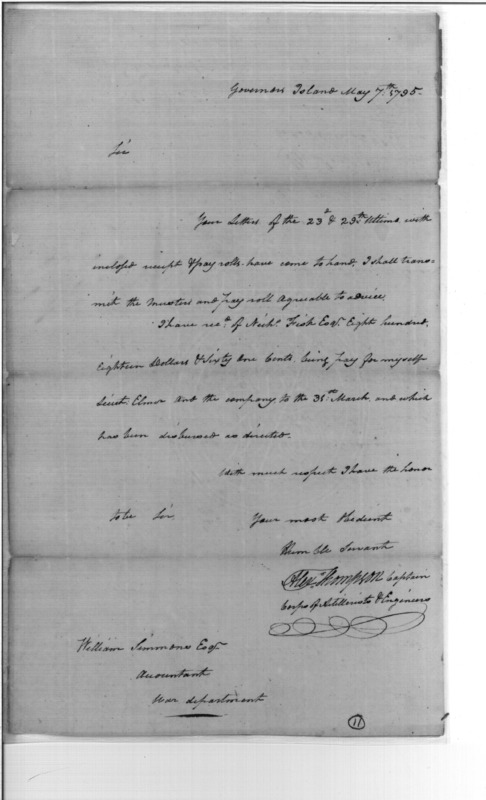 Governors Island May 7th 1795.
Sir
Your Letters of the 23d & 29th Ultimo with
inclosed receipt & pay rolls, have come to hand, I shall trans-
mit the Musters and pay roll Agreable to advice.
I have recd. of Nichs. Fish Esqr. Eight hundred,
Eighteen Dollars & Sixty One Cents. being pay for myself
Lieut. Elmer and the company, to the 31st March, and which
has been disbursed as directed.
With much respect I have the honor
to be Sir
Your most Obedient
Humble Servant
Alexr. Thompson Captain
Corps of Artillerists & Engineers
William Simmons Esqr.
Accountant
War department
11